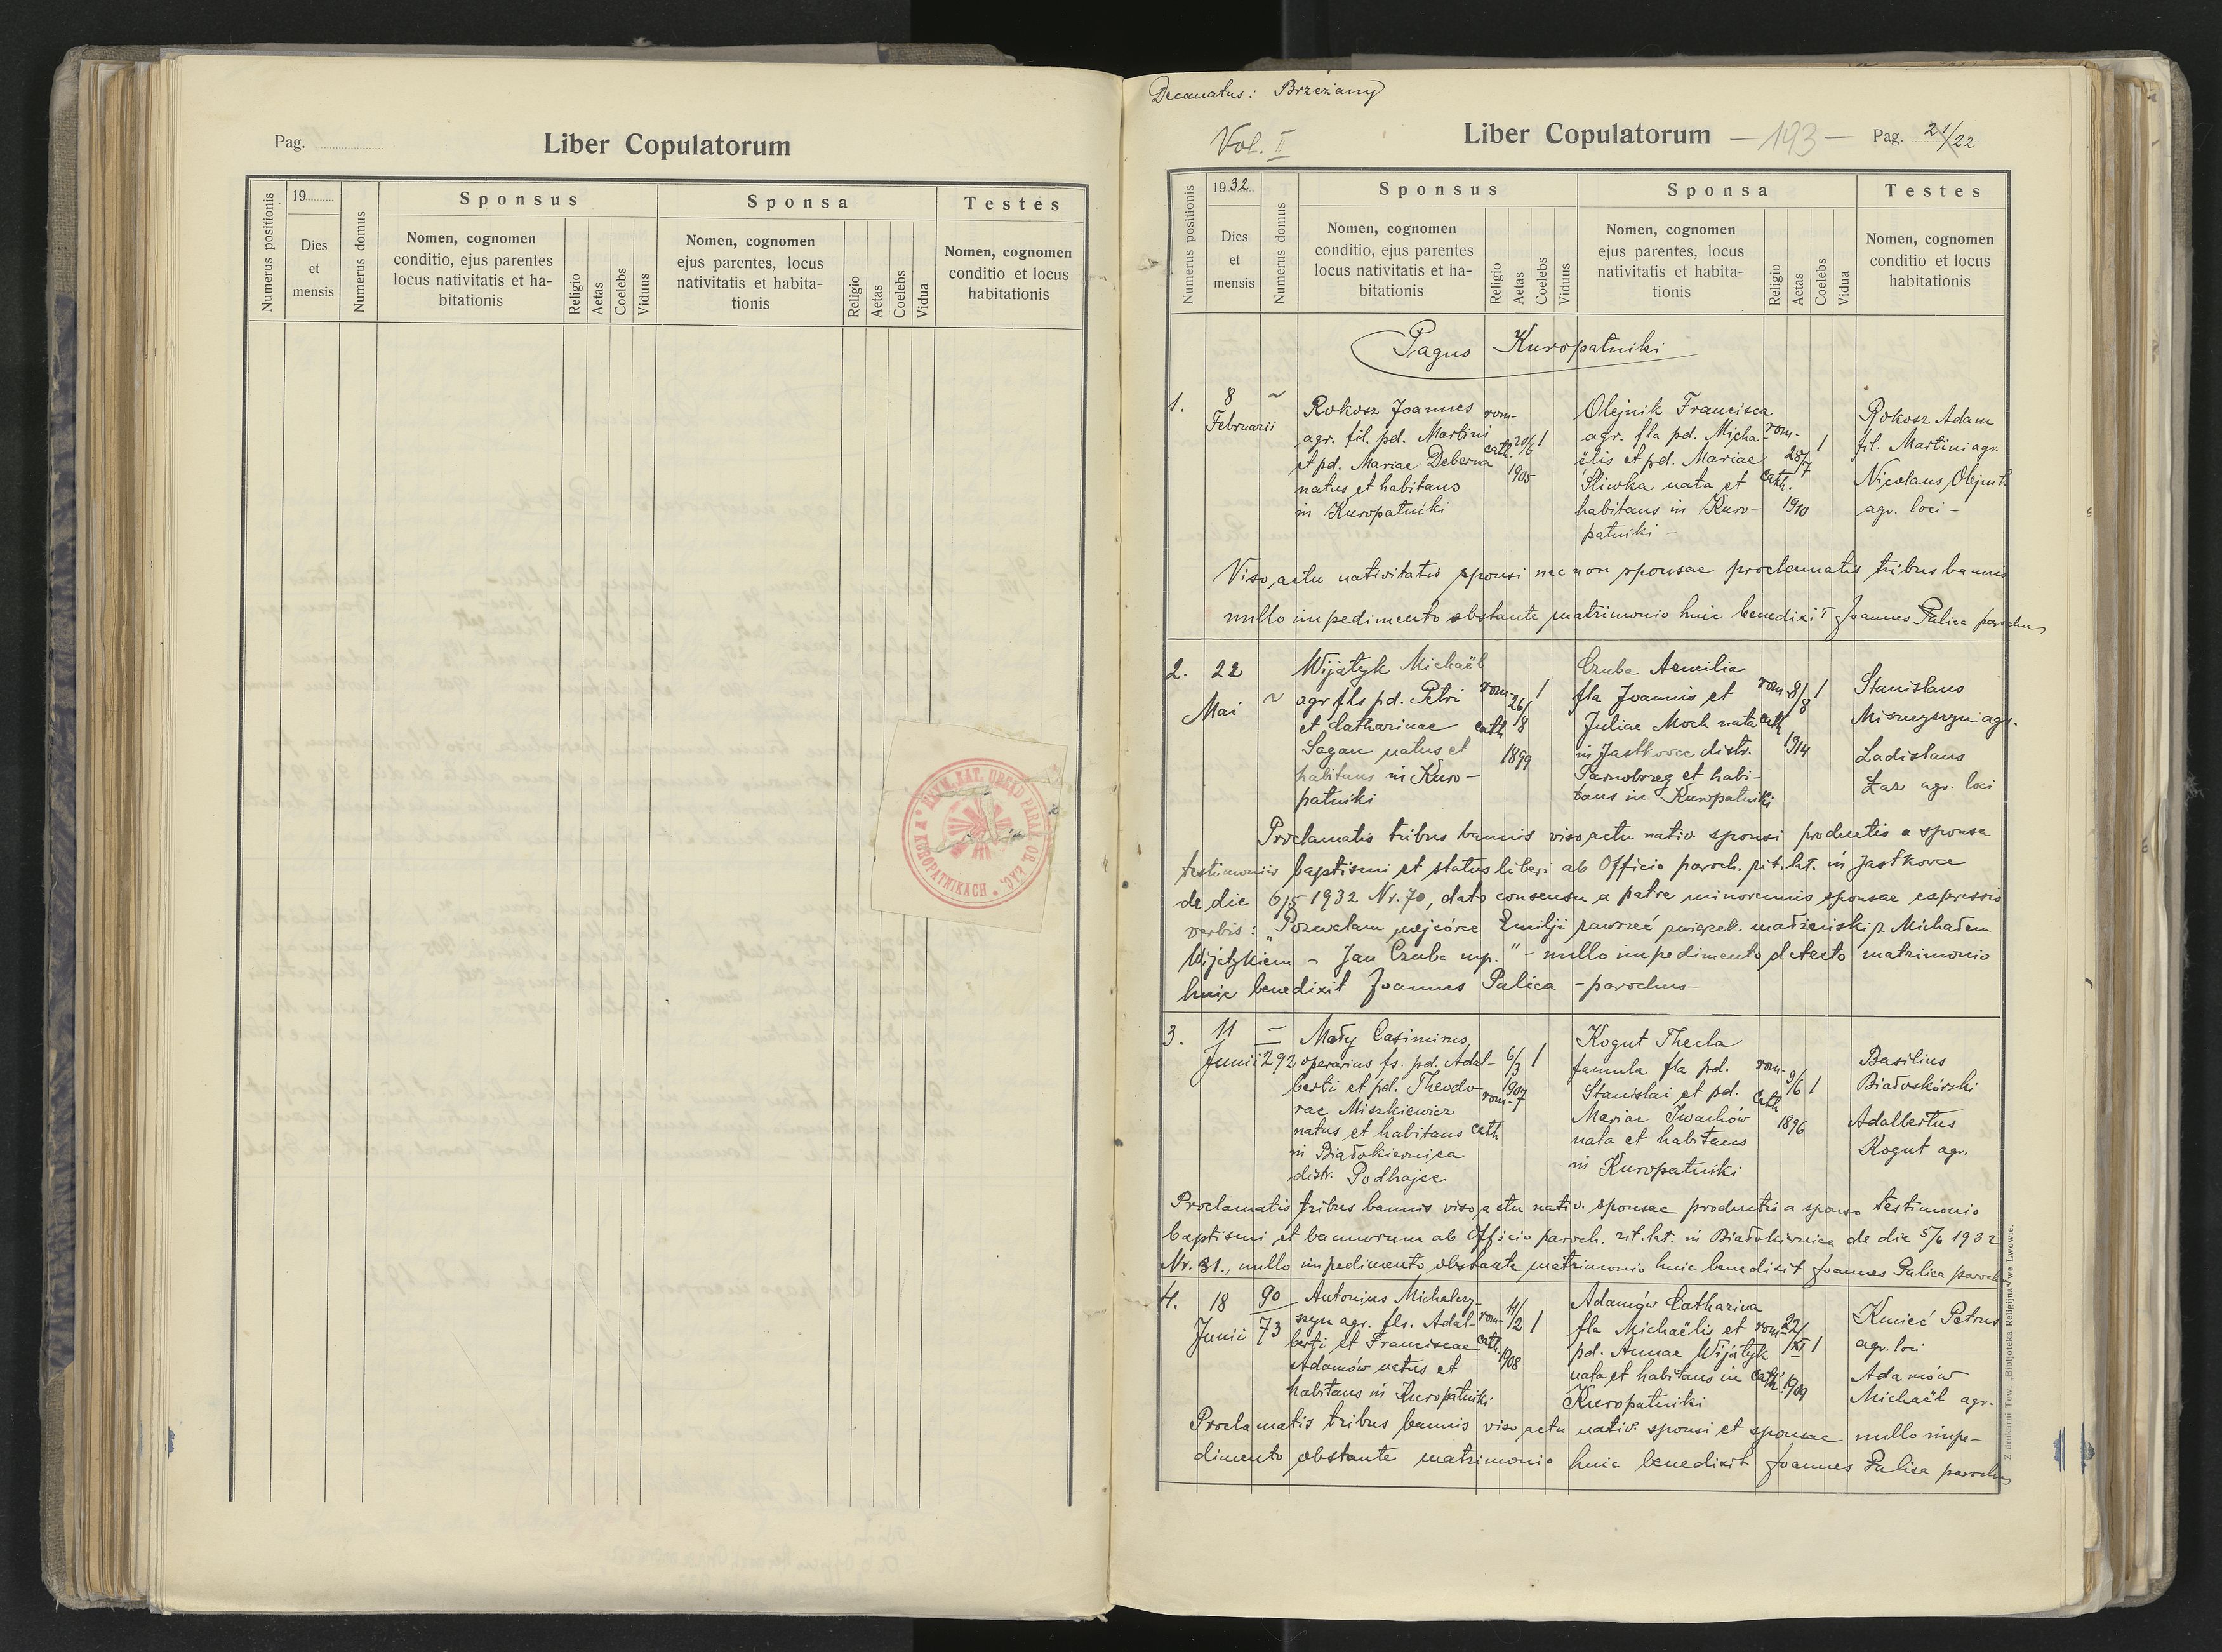 Pag.
Liber Copulatorum
Numerus positionis
19
Dies
et
mensis
Numerus domus
Sponsus
Nomen, cognomen
conditio, ejus parentes
locus nativitatis et ha-
bitationis
Religio
Aetas
Coelebs
Viduus
Sponsa
Nomen, cognomen
ejus parentes, locus
nativitatis et habita-
tionis
Religio
Aetas
Coelebs
Vidua
Testes
Nomen, cognomen
conditio et locus
habitationis
RZYM. KAT. URZĄD PARAF. OB. ŁAC. W KUROPATNIKACH
Decanatus: Brzeżany
Vol. II
Liber Copulatorum
— 193 —
Pag. 21/22
Numerus positionis
1932
Dies
et
mensis
Numerus domus
Sponsus
Nomen, cognomen
conditio, ejus parentes
locus nativitatis et ha-
bitationis
Religio
Aetas
Coelebs
Viduus
Sponsa
Nomen, cognomen
ejus parentes, locus
nativitatis et habita-
tionis
Religio
Aetas
Coelebs
Vidua
Testes
Nomen, cognomen
conditio et locus
habitationis
Pagus Kuropatniki
1.
8
Februarii
~
Rokosz Joannes
agr. fil. pd. Martini
et pd. Mariae Deberna
natus et habitans
in Kuropatniki
rom-
cath.
20/6
1905
1
Olejnik Francisca
agr. fla pd. Micha-
ëlis et pd. Mariae
Śliwka nata et
habitans in Kuro-
patniki -
rom-
cath.
28/7
1910
1
Rokosz Adam
fil. Martini agr.
Nicolaus Olejnik
agr. loci -
Viso actu nativitatis sponsi nec non sponsae proclamatis tribus bannis
nullo impedimento obstante matrimonio huic benedixit Joannes Palica parochus
2.
22
Mai
~
Wijatyk Michaël
agr. fls pd. Petri
et Catharinae
Sagan natus et
habitans in Kuro-
patniki
rom-
cath
26/8
1899
1
Czuba Aemilia
fla Joannis et
Juliae Moch nata
in Jastkowce distr.
Tarnobrzeg et habi-
tans in Kuropatniki
rom
cath
8/8
1914
1
Stanislaus
agr.
Ladislaus
Łaz agr. loci
Proclamatis tribus bannis viso actu nativ. sponsi productis a sponsa
testimoniis baptismi et status liberi ab Officio paroch. rit. lat. in Jastkowce
de die 6/5 1932 Nr. 70, dato consensu a patre minorennis sponsae expressis
verbis: „Pozwalam mej córce Emilji zawrzeć związek małżeński z Michałem
Wijatykiem - Jan Czuba mp." - nullo impedimento detecto matrimonio
huic benedixit Joannes Palica - parochus -
3.
11
Junii
292
Mały Casimirus
operarius fs. pd. Adal-
berti et pd. Theodo-
rae Miszkiewicz
natus et habitans
in Białokiernica
distr. Podhajce
6/3
1907
1
rom-
cath
Kogut Thecla
famula fla pd.
Stanislai et pd.
Mariae Iwachów
nata et habitans
in Kuropatniki
rom-
cath
9/6
1896
1
Basilius
Białoskórski
Adalbertus
Kogut agr.
Proclamatis tribus bannis viso actu nativ. sponsae productis a sponso testimonio
baptismi et bannorum ab Officio paroch. rit. lat. in Białokiernica de die 5/6 1932
Nr. 31., nullo impedimento obstante matrimonio huic benedixit Joannes Palica parochus
4.
18
Junii
90
73
Antonius Michalczy-
szyn agr. fls. Adal-
berti et Franciscae
Adamów natus et
habitans in Kuropatniki
rom-
cath.
11/2
1908
1
Adamów Catharina
fla Michaëlis et
pd. Annae Wijatyk
nata et habitans in
Kuropatniki
rom-
cath.
22/XI
1909
1
Kmieć Petrus
agr. loci
Adamów
Michaël agr.
Proclamatis tribus bannis viso actu nativ. sponsi et sponsae nullo impe-
dimento obstante matrimonio huic benedixit Joannes Palica parochus
Z drukarni Tow. „Bibljoteka Religijna" we Lwowie.